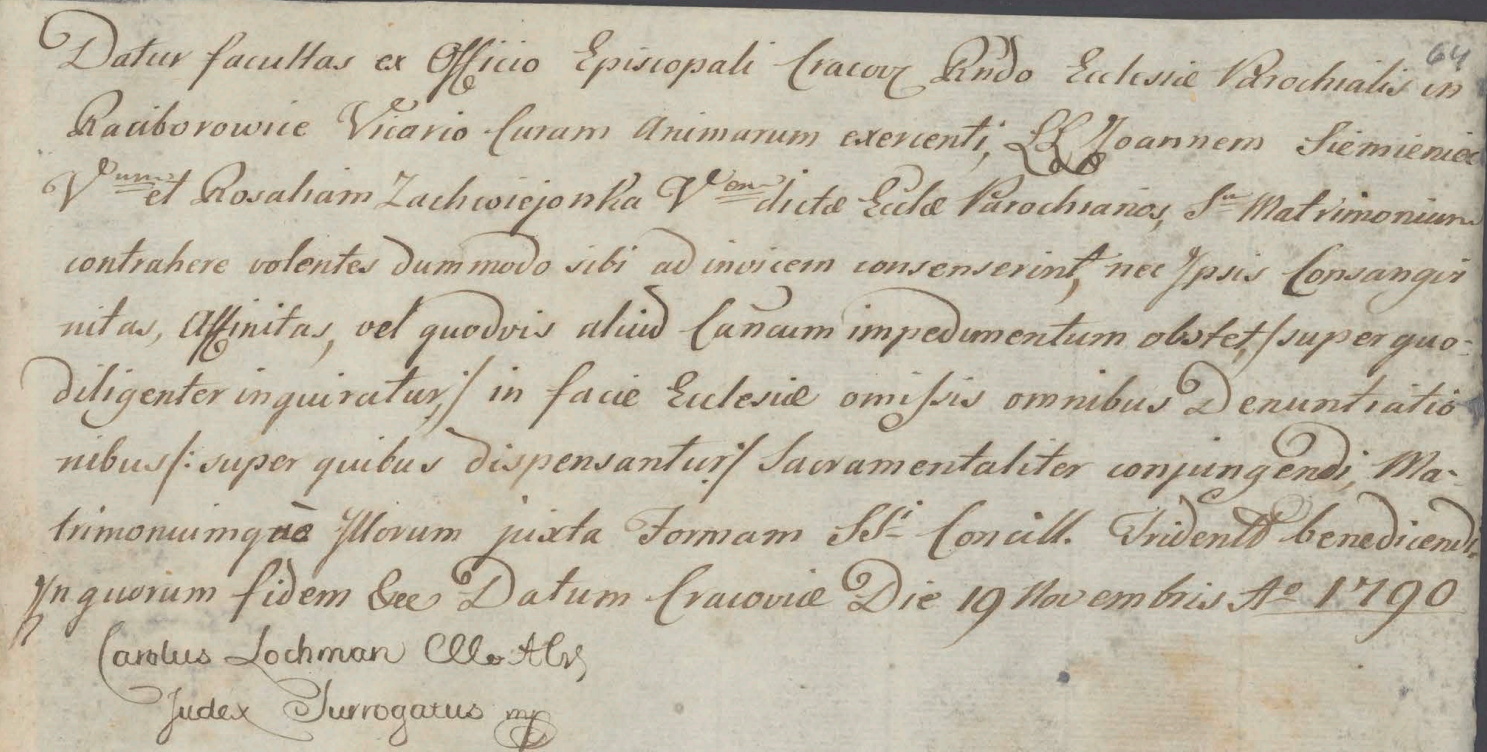 64
Datur facultas ex Officio Episcopali Cracov Rndo Ecclesiæ Parochialis in
Raciborowice Vicario Curam Animarum exercenti, LL Joannem Siemieniec
Vum et Rosaliam Zachwiejonka Vem dictæ Eclæ Parochianos, Sm Matrimonium
contrahere volentes dummodo sibi ad invicem consenserint, nec Ipsis Consangvi
nitas, Affinitas, vel quodvis aliud Cañcum impedimentum obstet, /super quo=
diligenter inquiratur:/ in facie Ecclesiæ omissis omnibus Denuntiatio
nibus /: super quibus dispensantur:/ Sacramentaliter conjungendi, Ma=
trimoniumque Illorum juxta Formam SSi Concill. Tridentt benedicendi.
In quorum fidem &ee Datum Cracoviæ Die 19 Novembris Ao 1790
Carolus Lochman
Judex Surrogatus mp